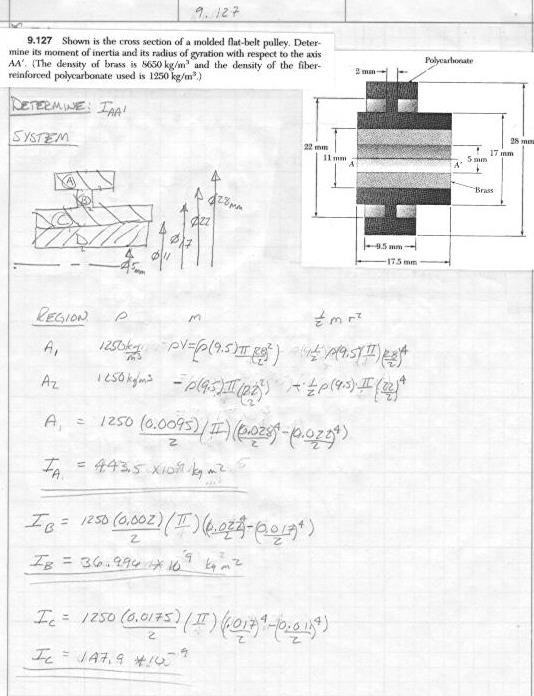 9.127
9.127 Shown is the cross section of a molded flat-belt pulley. Deter-
mine its moment of inertia and its radius of gyration with respect to the axis
AA'. (The density of brass is 8650 kg/m³ and the density of the fiber-
reinforced polycarbonate used is 1250 kg/m³.)
Polycarbonate
2 mm
22 mm
11 mm
A
A'
5 mm
17 mm
28 mm
Brass
9.5 mm
17.5 mm
DETERMINE: I_AA'
SYSTEM
A
B
C
D
5mm
Ø11
Ø17
Ø22
Ø28mm
REGION ρ m ½ m r²
A₁ 1250 kg/m³ ρV = ρ(9.5)π
A₂ 1250 kg/m³ -ρ(9.5)π (22/2)² ½ρ(9.5)π (22/2)⁴
A₁ = 1250 (0.0095)/2 (π) (0.028/2⁴ - 0.022/2⁴)
I_A = 443.5 x10⁻⁹ kg m²
I_B = 1250 (0.002)/2 (π) (0.022/2⁴ - 0.017/2⁴)
I_B = 36.994 * 10⁻⁹ kg m²
I_C = 1250 (0.0175)/2 (π) (0.017/2⁴ - 0.011/2⁴)
I_C = 147.9 * 10⁻⁹